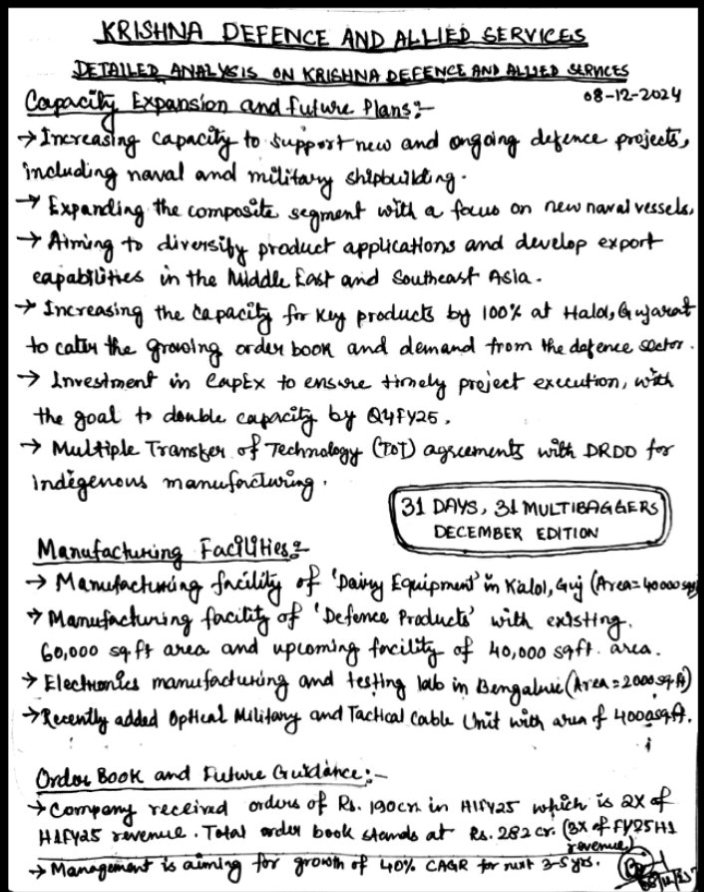 KRISHNA DEFENCE AND ALLIED SERVICES
DETAILED ANALYSIS ON KRISHNA DEFENCE AND ALLIED SERVICES
08-12-2024
Capacity Expansion and future Plans:-
→ Increasing capacity to support new and ongoing defence projects,
including naval and military shipbuilding.
→ Expanding the composite segment with a focus on new naval vessels.
→ Aiming to diversify product applications and develop export
capabilities in the Middle East and Southeast Asia.
→ Increasing the capacity for key products by 100% at Halol, Gujarat
to cater the growing order book and demand from the defence sector.
→ Investment in CapEx to ensure timely project execution, with
the goal to double capacity by Q4FY25.
→ Multiple Transfer of Technology (TOT) agreements with DRDO for
indigenous manufacturing.
31 DAYS, 31 MULTIBAGGERS
DECEMBER EDITION
Manufacturing Facilities:-
→ Manufacturing facility of 'Dairy Equipment' in Kalol, Guj (Area=40000 sq
→ Manufacturing facility of 'Defence Products' with existing
60,000 sq ft area and upcoming facility of 40,000 sqft. area.
→ Electronics manufacturing and testing lab in Bengaluru (Area=2000 sq ft)
→ Recently added Optical Military and Tactical Cable Unit with area of 4000sqft.
Order Book and Future Guidance:-
→ Company received orders of Rs. 190cr. in H1FY25 which is 2X of
H1FY25 revenue. Total order book stands at Rs. 282 cr. (3X of FY25H1
revenue)
→ Management is aiming for growth of 40% CAGR for next 3-5 yrs.